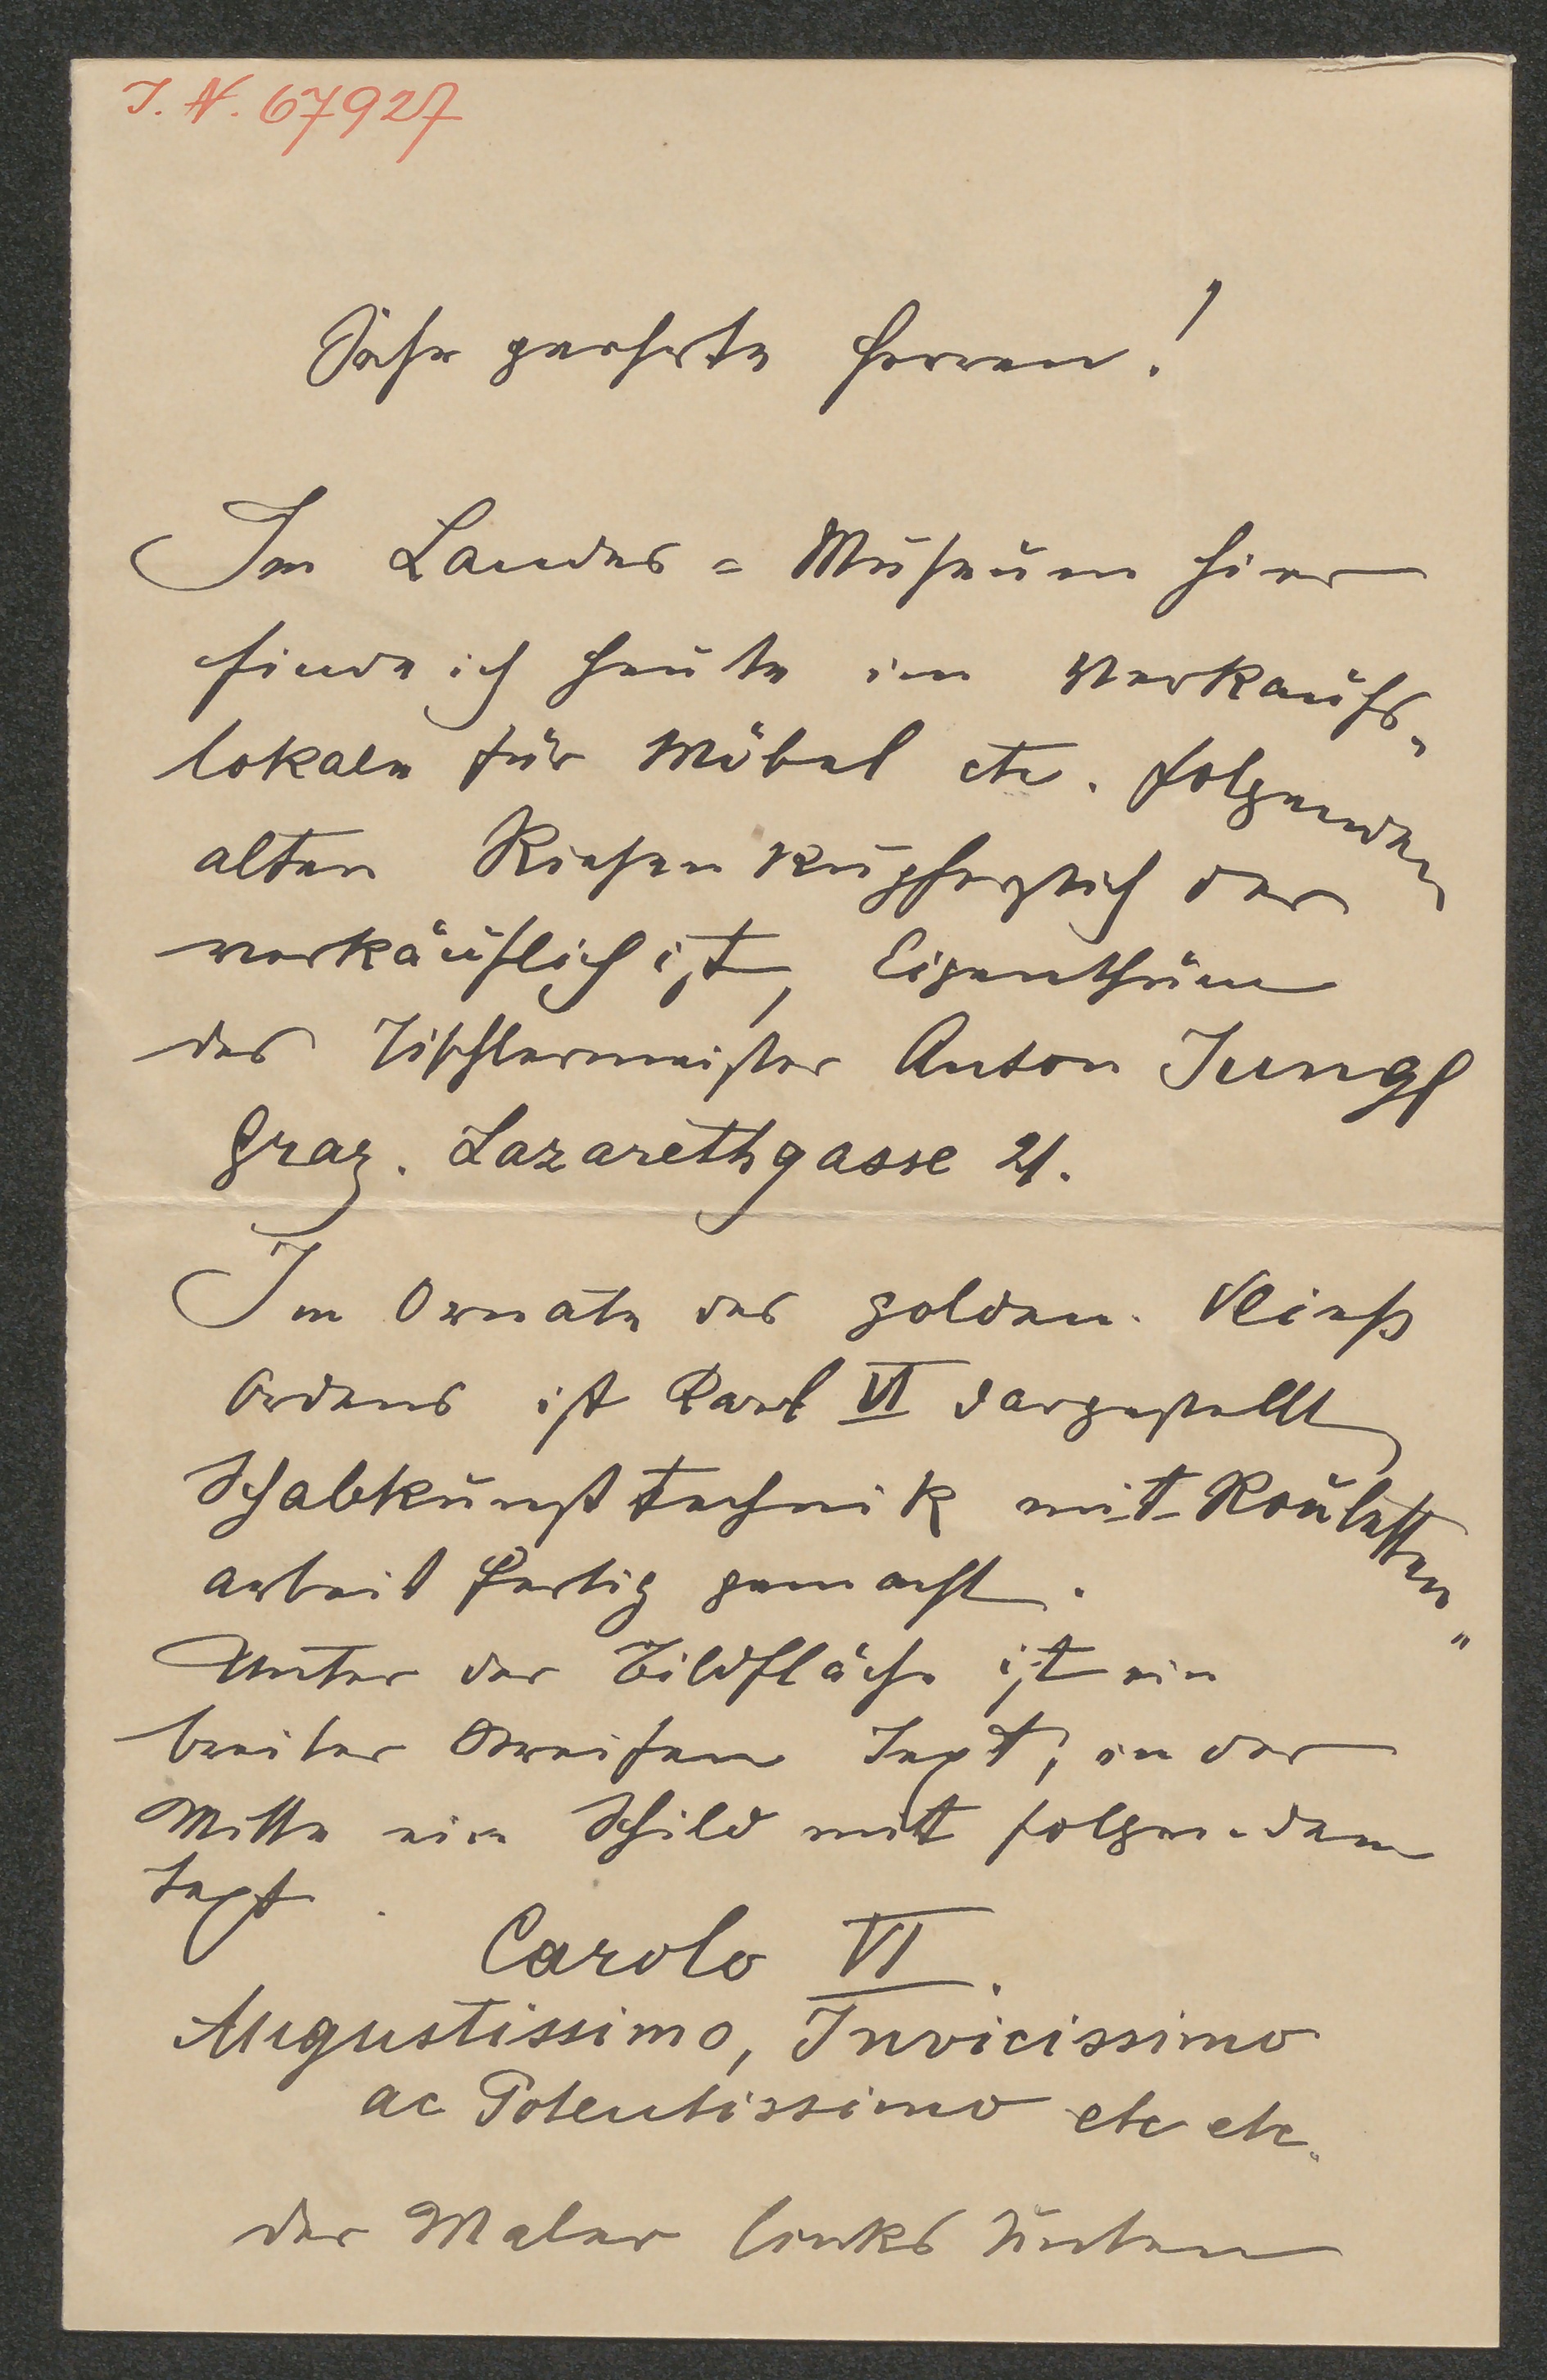 J. N. 67927
Sehr geehrte Herren!
Im Landes = Museum hier
finde ich heute im Verkaufs-
lokale für Möbel etc. folgenden
alten Riesenkupferstich der
verkäuflich ist, Eigenthum
des Tischlermeister Anton Jungl
Graz. Lazarethgasse 21.
Im Ornate des golden. Vließ
Ordens ist Karl VI dargestellt
Schabkunsttechnik mit Rouletten-
arbeit fertig gemacht.
Unter der Bildfläche ist ein
breiter Streifen Text, in der
Mitte ein Schild mit folgendem
Text.
Carolo VI.
Augustissimo, Invicissimo
ac Potentissimo etc etc.
der Maler links unten